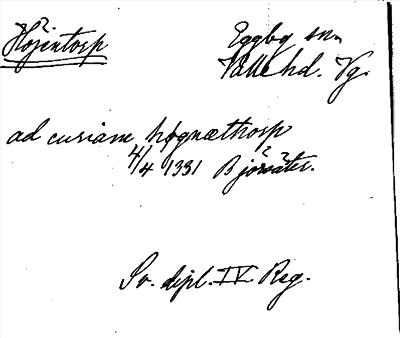 Höjentorp
Eggby sn.
Valle hd. Vg.
ad curiam høgnæthorp
4/4 1331 Bjärsäter.
Sv. dipl. IV. Reg.